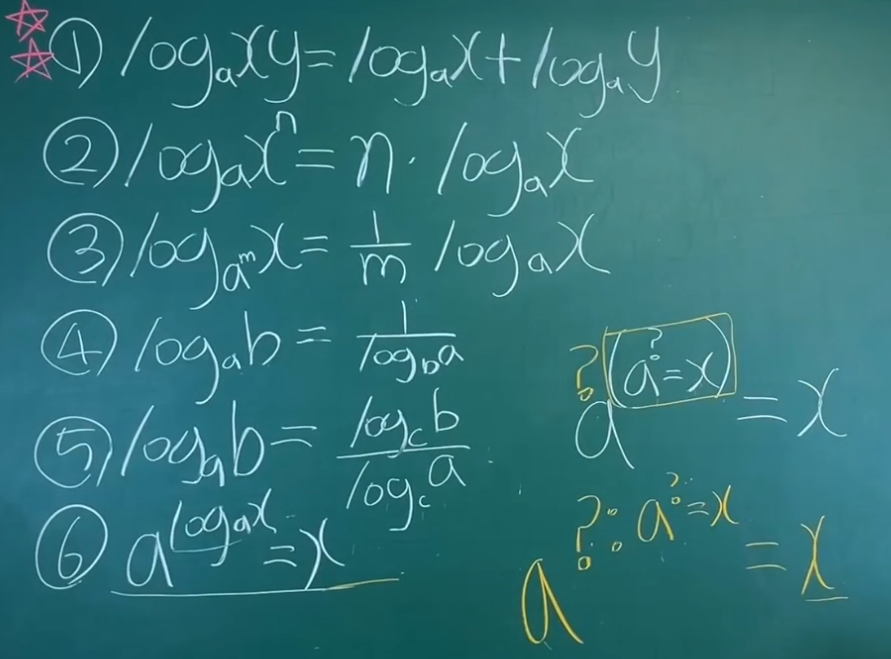 ① logₐxy = logₐx + logₐy
② logₐxⁿ = n · logₐx
③ log_{a^m} x = 1/m logₐx
④ logₐb = 1/log_b a
⑤ logₐb = log_c b / log_c a
⑥ a^{logₐx} = x
a^{? (a^? = x)} = x
a^{? : a^? = x} = x